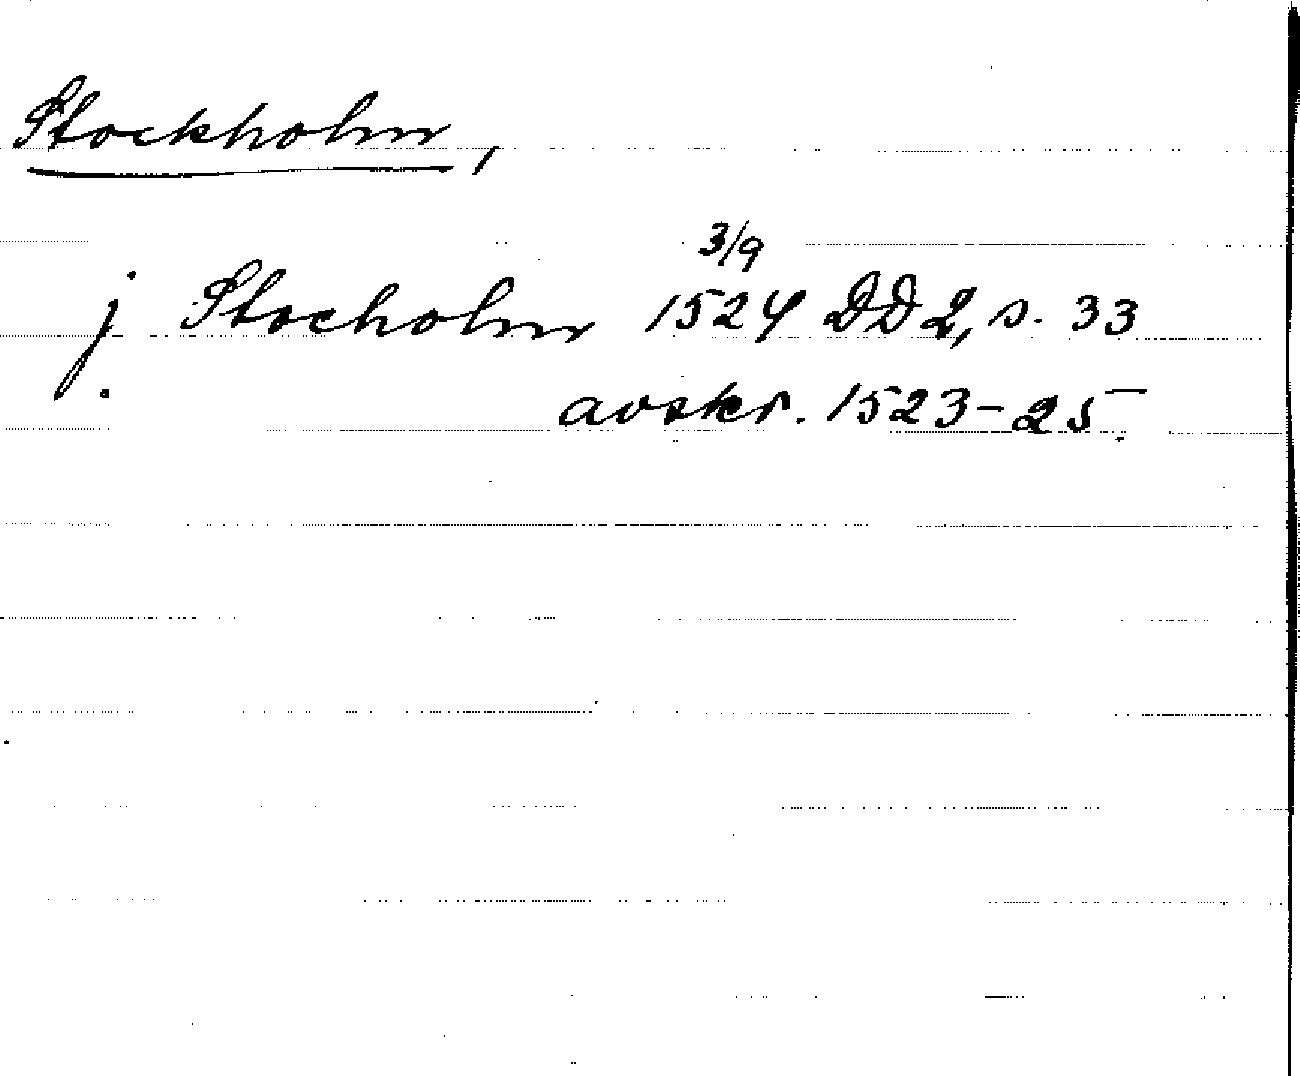 Stockholm,
3/9
j Stocholm 1524 DD2, s. 33
avskr. 1523-25.